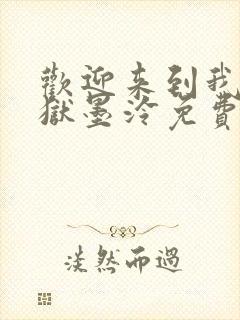 歡迎来到我
獄墨泠免費
淡然而過